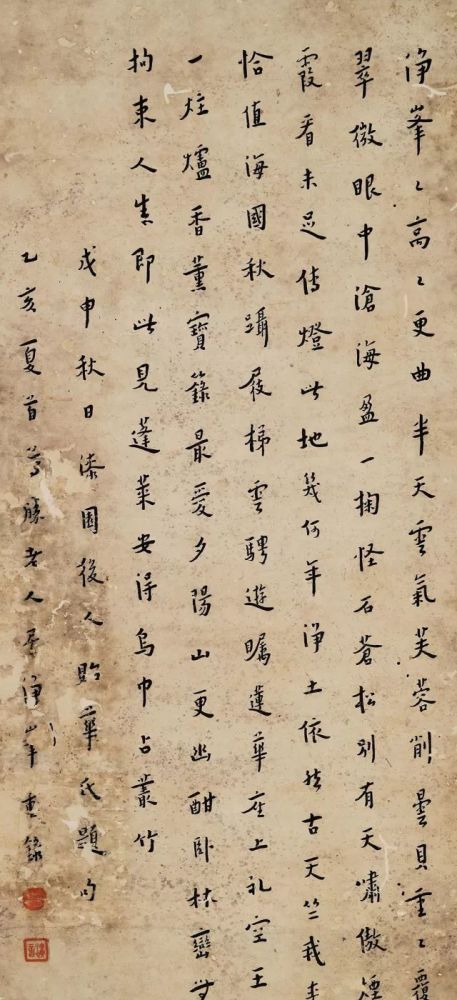 淨峯〻高〻更曲半天雲氣芙蓉削曇貝重〻覆
翠微眼中滄海盈一掬怪石蒼松別有天嘯傲煙
霞看未足傳燈此地幾何年淨土依然古天竺我來
恰值海國秋躡屐梯雲騁遊矚蓮華座上礼空王
一炷爐香薰寶籙最愛夕陽山更幽酣臥林巒無
拘束人生即此見蓬萊安得烏巾占叢竹
戊申秋日漆園後人貽華氏題句
乙亥夏首尊勝老人居淨峯重錄